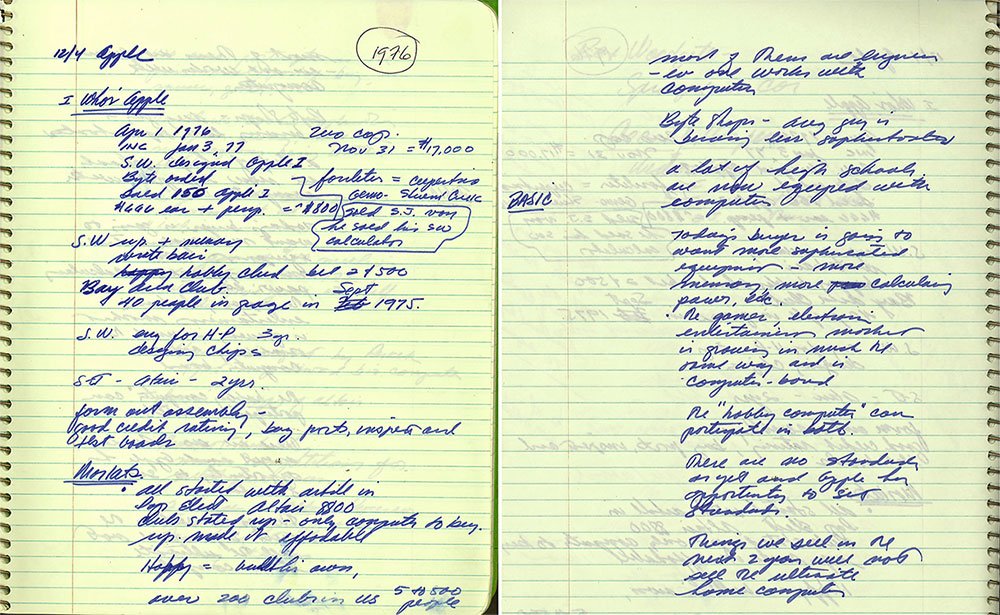 12/4 Apple
1976
I Who's Apple
Apr 1 1976
INC Jan 3, 77
S.W. designed Apple I
Byte orded
sold 150 Apple I
200 corp.
Nov 31 = $17,000
$666 ea + perp. = ^$800
sold S.J. van
he sold his SW
calculator
S.W up + memory
write basic
hobby club
Bay Area Club. Sept
40 people in garage in 1975.
S.W. eng for H-P 3 yr.
desging chips
S-J - Atari - 2 yrs.
farm out assembly -
good credit rating, buy parts, inspect and
test boards
Markets.
• all started with article in
Pop Elect Altair 8800
Clubs started up - only computer to buy.
up made it affordable
= build his own,
over 200 clubs in US 5 to 500
people
most of them are engineers
- or one works with
computers
Byte Shops - avg guy is
a lot of high schools
are now equiped with
computers
BASIC
Today's buyer is going to
want more sophisticated
equipment - more
memory, more calculating
power, etc.
• The games, electronic
entertainment market
is growing in much the
same way and is
computer-bound
The "hobby computer" can
participate in both.
There are no standards
as yet and Apple has
opportunity to set
standards.
Things we sell in the
next 2 years will not
sell the ultimate
home computer